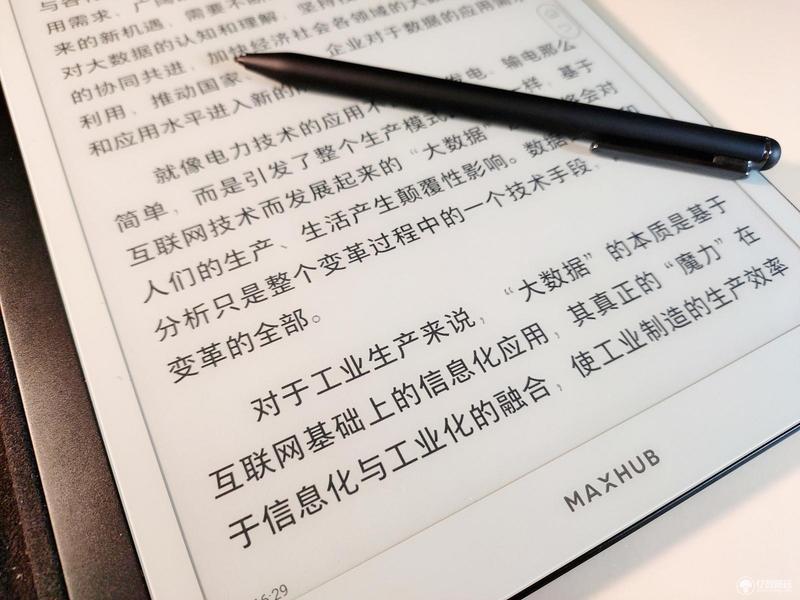 用需求，广阔的
来的新机遇，需要不断
对大数据的认知和理解，坚持
的协同共进，加快经济社会各领域的大数
利用，推动国家、企业对于数据的应用需求
和应用水平进入新的
就像电力技术的应用不 发电、输电那么
简单，而是引发了整个生产模式 一样，基于
互联网技术而发展起来的“大数据” 将会对
人们的生产、生活产生颠覆性影响。数据 和
分析只是整个变革过程中的一个技术手段，
变革的全部。
对于工业生产来说，“大数据”的本质是基于
互联网基础上的信息化应用，其真正的“魔力”在
于信息化与工业化的融合，使工业制造的生产效率
16:29
MAXHUB